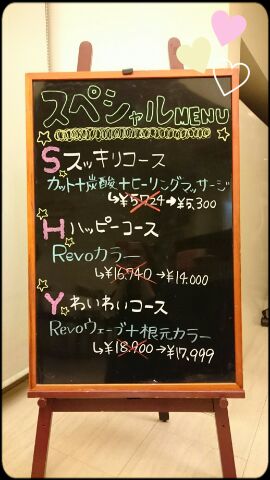 スペシャルMENU
Sスッキリコース
カット+炭酸+ヒーリングマッサージ
↳¥5724→¥5,300
Hハッピーコース
Revoカラー
↳¥16.740→¥14.000
Yわいわいコース
Revoウェーブ+根元カラー
↳¥18.900→¥17,999